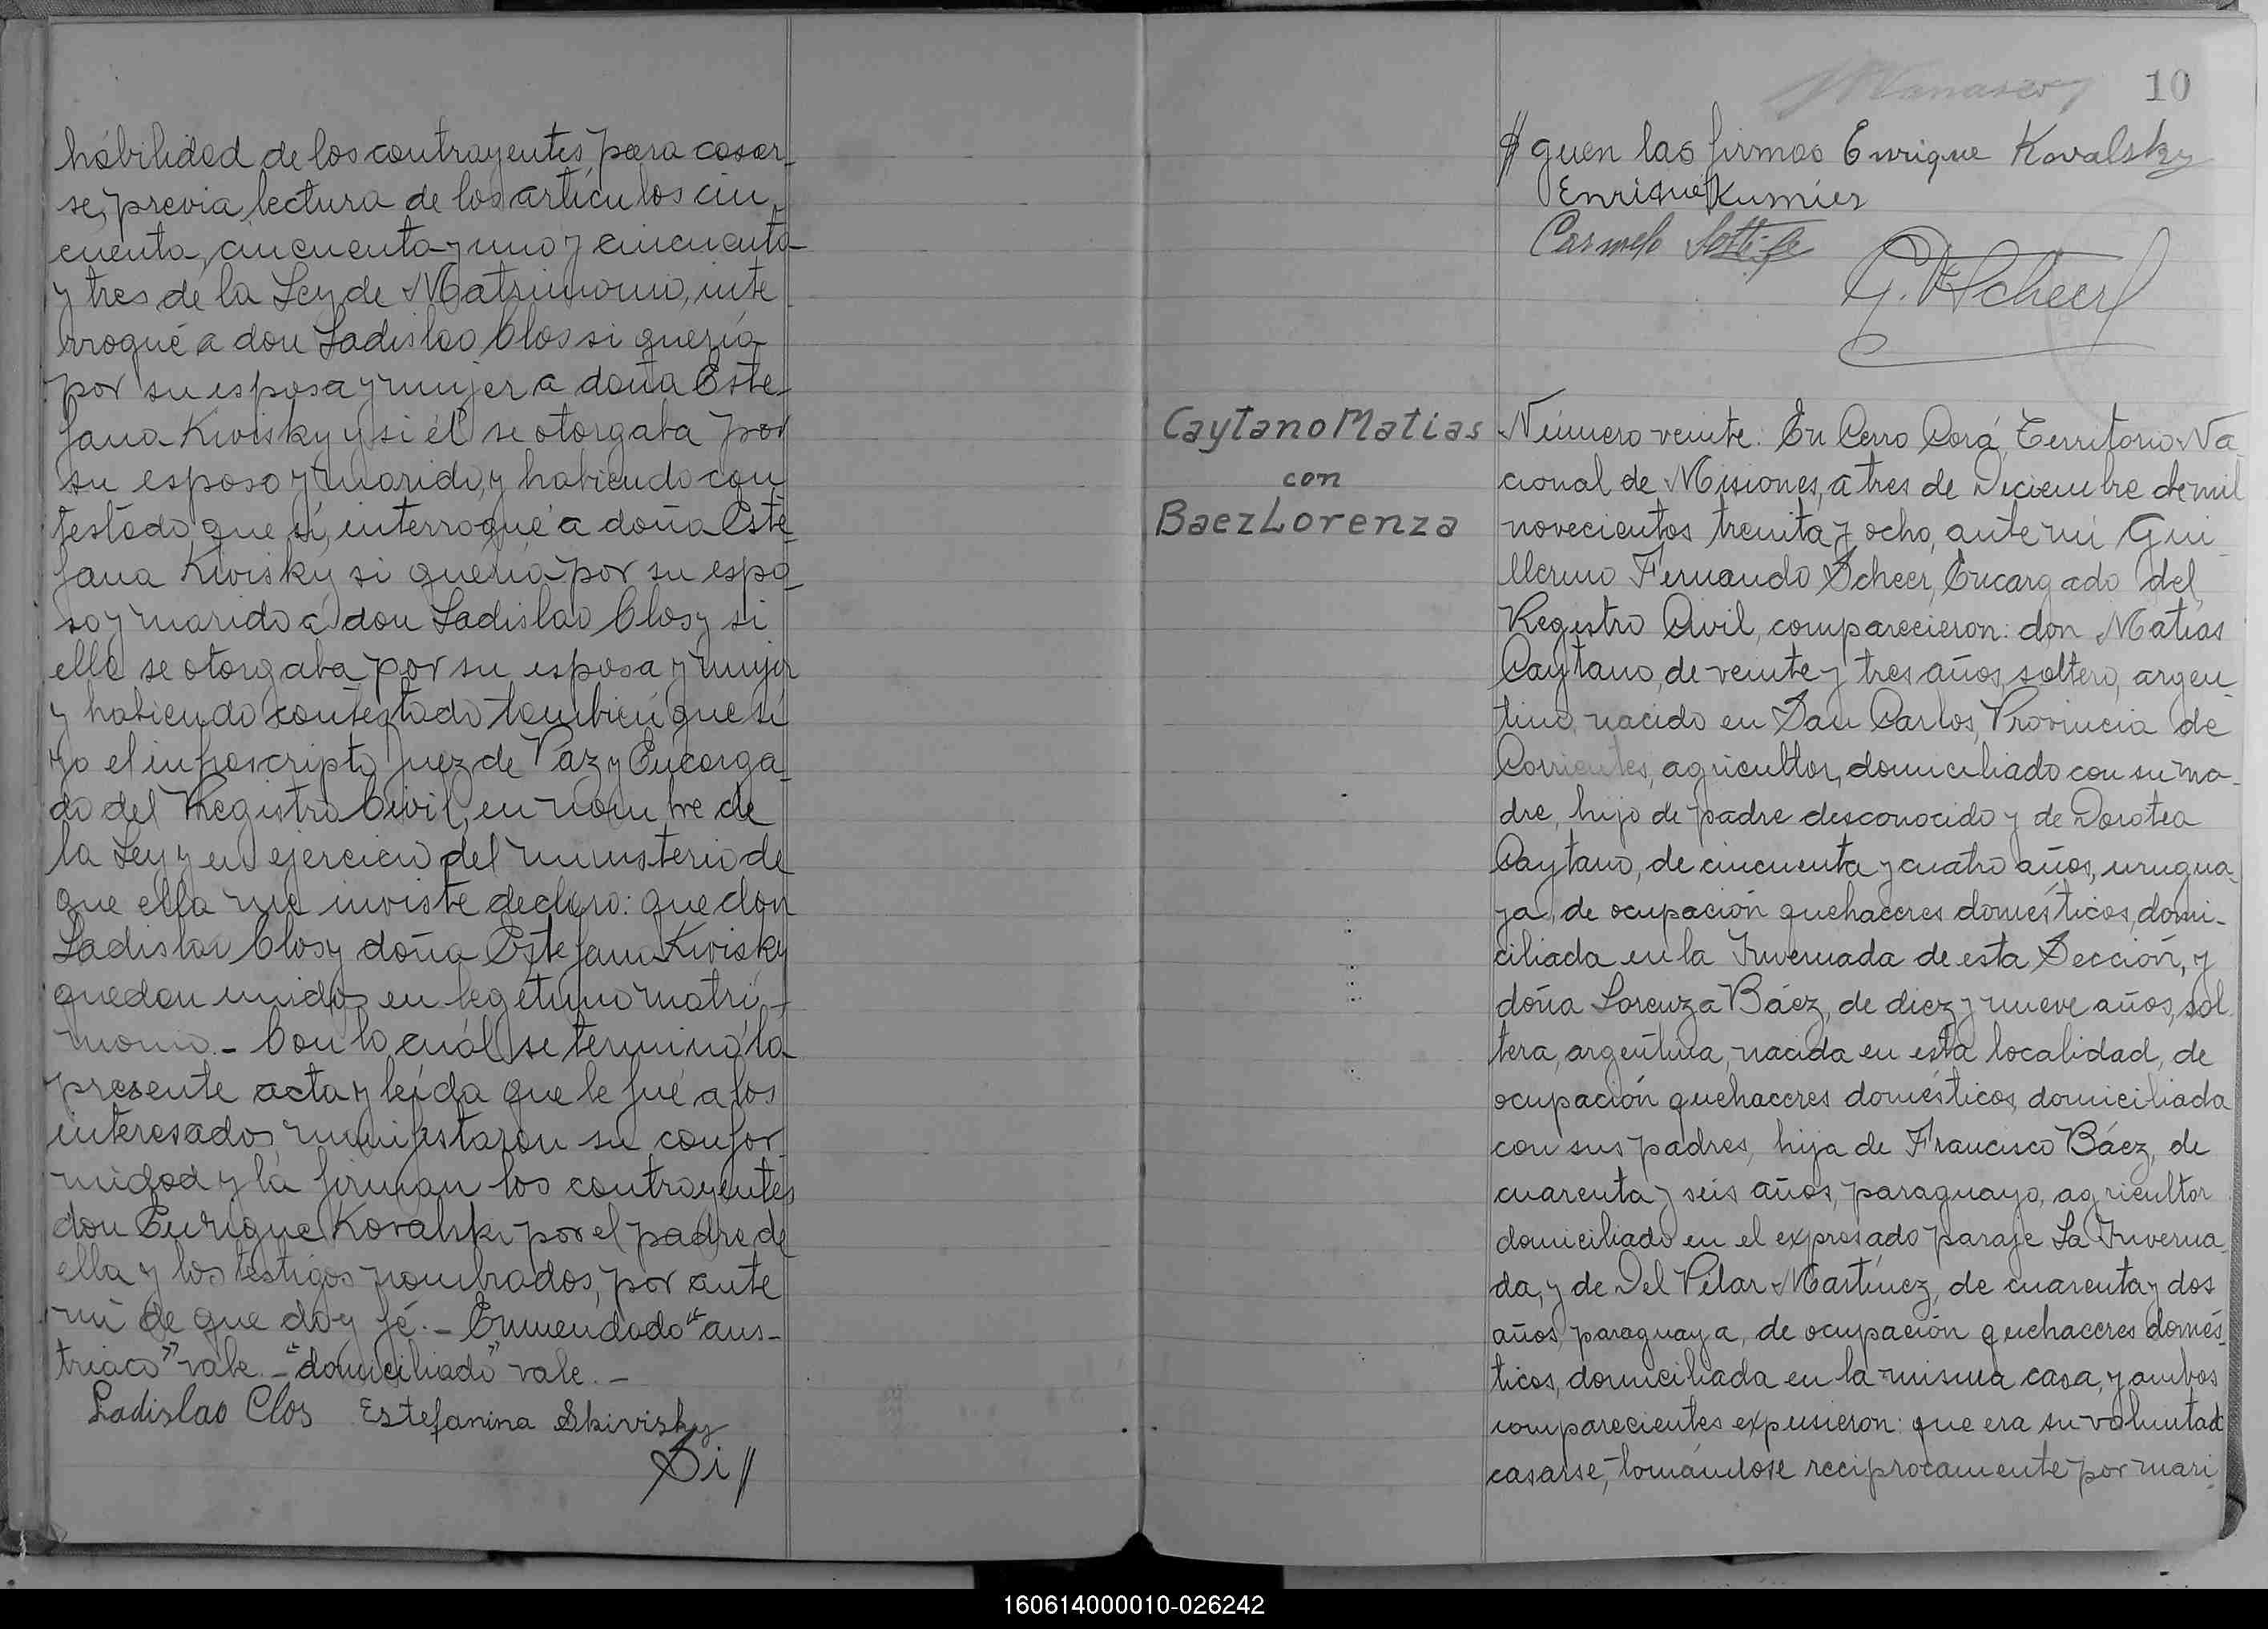 habilidad de los contrayentes para casar-
se, previa lectura de los artículos cin
cuenta, cincuenta y uno y cincuenta
y tres de la Ley de Matrimonio, inte
rrogué a don Ladislao Clos si quería
por su esposa y mujer a doña Este
fana Kivisky y si él se otorgaba por
su esposo y marido, y habiendo con
testado que sí, interrogué a doña Este
fana Kivisky si quería por su espo
so y marido a don Ladislao Clos y si
ella se otorgaba por su esposa y mujer
y habiendo contestado también que sí
yo el infrascripto Juez de Paz y Encarga
do del Registro Civil, en nombre de
la Ley y en ejercicio del ministerio de
que ella me inviste declaro: que don
Ladislao Clos y doña Estefana Kivisky
quedan unidos en legítimo matri-
monio.- Con lo cuál se terminó la
presente acta y leída que le fué a los
interesados, manifestaron su confor
midad y la firman los contrayentes
don Enrique Kovalski por el padre de
ella y los testigos nombrados, por ante
mí de que doy fé.- Enmendado "aus-
triaco" vale.- "domiciliado" vale.-
Ladislao Clos Estefanina Skivisky
Si//
10
// guen las firmas Enrique Kovalsky
Enrique Kumier
Carmelo
G. F. Scheer
Caytano Matias
con
Baez Lorenza
Número veinte. En Cerro Corá, Territorio Na
cional de Misiones, a tres de Diciembre de mil
novecientos treinta y ocho, ante mí Gui
llermo Fernando Scheer, Encargado del
Registro Civil, comparecieron: don Matías
Caytano, de veinte y tres años, soltero, argen
tino, nacido en San Carlos, Provincia de
Corrientes, agricultor, domiciliado con su ma-
dre, hijo de padre desconocido y de Dorotea
Caytano, de cincuenta y cuatro años, urugua
ya, de ocupación quehaceres domésticos, domi-
ciliada en la Invernada de esta Sección, y
doña Lorenza Báez, de diez y nueve años, sol
tera, argentina, nacida en esta localidad, de
ocupación quehaceres domésticos, domiciliada
con sus padres, hija de Francisco Báez, de
cuarenta y seis años, paraguayo, agricultor
domiciliado en el expresado paraje La Inverna
da, y de Del Pilar Martínez, de cuarenta y dos
años, paraguaya, de ocupación quehaceres domés
ticos, domiciliada en la misma casa, y ambos
comparecientes expusieron: que era su voluntad
casarse, tomándose reciprocamente por mari
160614000010-026242